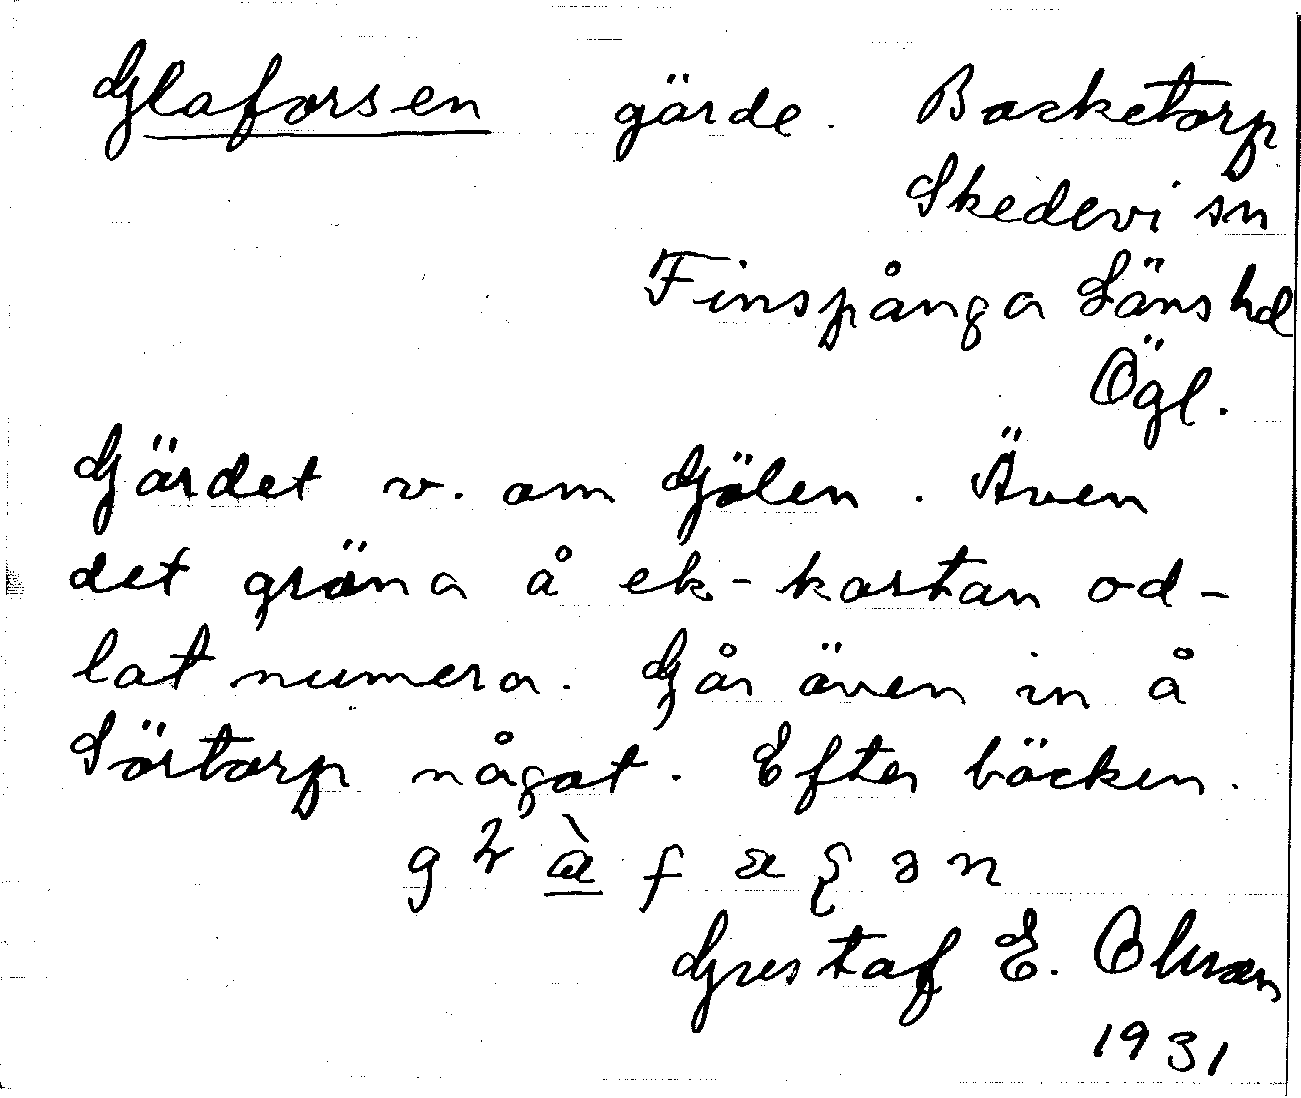 Glaforsen gärde. Backetorp
Skedevi sn
Finspånga Läns hd
Ögl.
Gärdet v. om Gölen. Även
det gröna å ek-kartan od-
lat numera. Går även in å
Sörtorp något. Efter bäcken.
Gustaf E. Ohman
1931